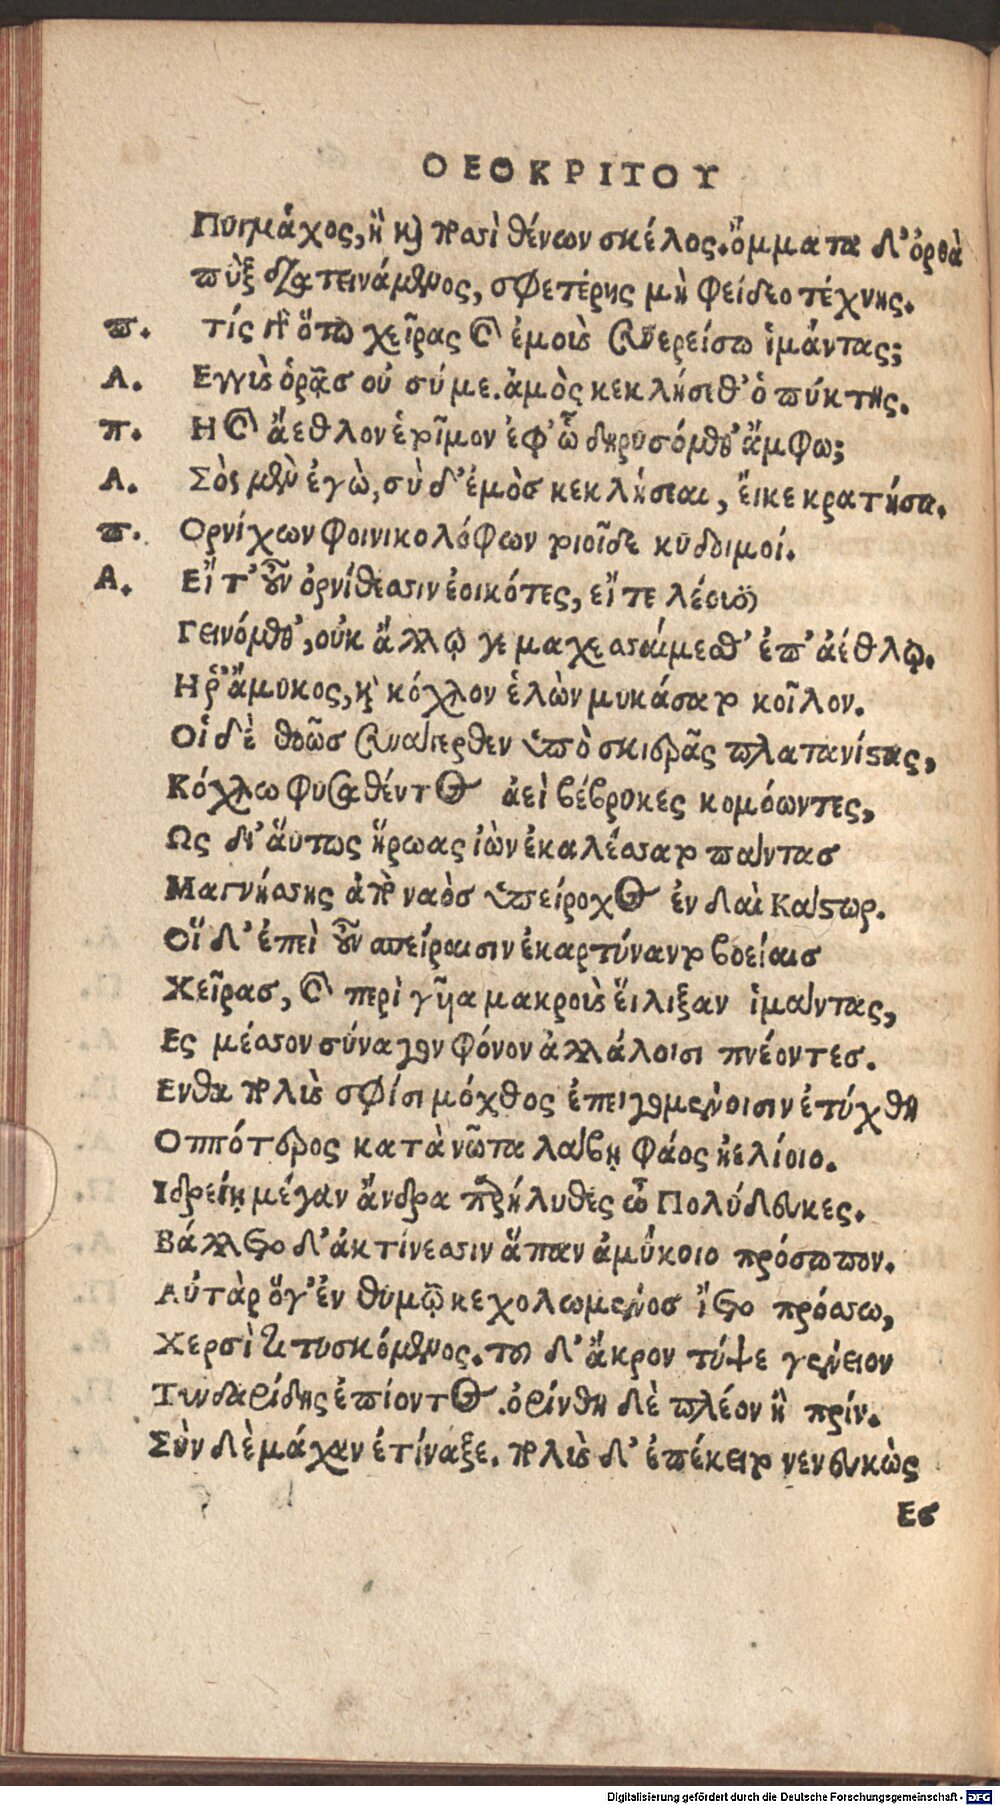 ΘΕΟΚΡΙΤΟΥ
Πυγμάχος, ἢ καὶ ποσὶ θένων σκέλος. ὄμματα δ' ὀρθὰ
πὺξ διατεινάμενος, σφετέρης μὴ φείδεο τέχνης.
π. τίς γὰρ ὅτῳ χεῖρας καὶ ἐμοὺς συνερείσω ἱμάντας;
Α. Εγγὺς ὁρᾷς οὐ σύ με. ἁμὸς κεκλήσεθ' ὁ πύκτης.
π. Η καὶ ἄεθλον ἑτοῖμον ἐφ' ᾧ δηρυσόμεθ' ἄμφω;
Α. Σὸς μὲν ἐγὼ, σὺ δ' ἐμὸς κεκλήσεαι, εἴκε κρατήσω.
π. Ορνίχων φοινικολόφων τοιοῖδε κυδοιμοί.
Α. Εἴτ' οὖν ὀρνίθεσσιν ἐοικότες, εἴτε λέουσι
Γεινόμεθ', οὐκ ἄλλῳ γε μαχεσσαίμεσθ' ἐπ' ἀέθλῳ.
Ηῥ' ἄμυκος, καὶ κόχλον ἑλὼν μυκάσατο κοῖλον.
Οἱ δὲ θοῶς συνάγερθεν ὑπὸ σκιερὰς πλατανίστας,
Κόχλω φυσαθέντος ἀεὶ βέβρυκες κομόωντες,
Ως δ' αὔτως ἥρωας ἰὼν ἐκαλέσσατο πάντας
Μαγνήσσης ἀπὸ ναὸς ὑπείροχος ἐν δαὶ Κάστωρ.
Οἵ δ' ἐπεὶ οὖν σπείραισιν ἐκαρτύναντο βοείαις
Χεῖρας, καὶ περὶ γυῖα μακροὺς εἵλιξαν ἱμάντας,
Ες μέσσον σύναγον φόνον ἀλλάλοισι πνέοντες.
Ενθα πολὺς σφίσι μόχθος ἐπειγομένοισιν ἐτύχθη
Οππότερος κατὰ νῶτα λάβῃ φάος ἠελίοιο.
Ιδρείῃ μέγαν ἄνδρα παρήλυθες ὦ Πολύδευκες.
Βάλλετο δ' ἀκτίνεσσιν ἅπαν ἀμύκοιο πρόσωπον.
Αὐτὰρ ὅγ' ἐν θυμῷ κεχολωμένος ἵετο πρόσσω,
Χερσὶ τιτυσκόμενος. τοῦ δ' ἄκρον τύψε γένειον
Τυνδαρίδης ἐπίοντος. ὀρίνθη δὲ πλέον ἢ πρίν.
Σὺν δὲ μάχαν ἐτίναξε. πολὺς δ' ἐπέκειτο νενευκὼς
Ες
Digitalisierung gefördert durch die Deutsche Forschungsgemeinschaft - DFG